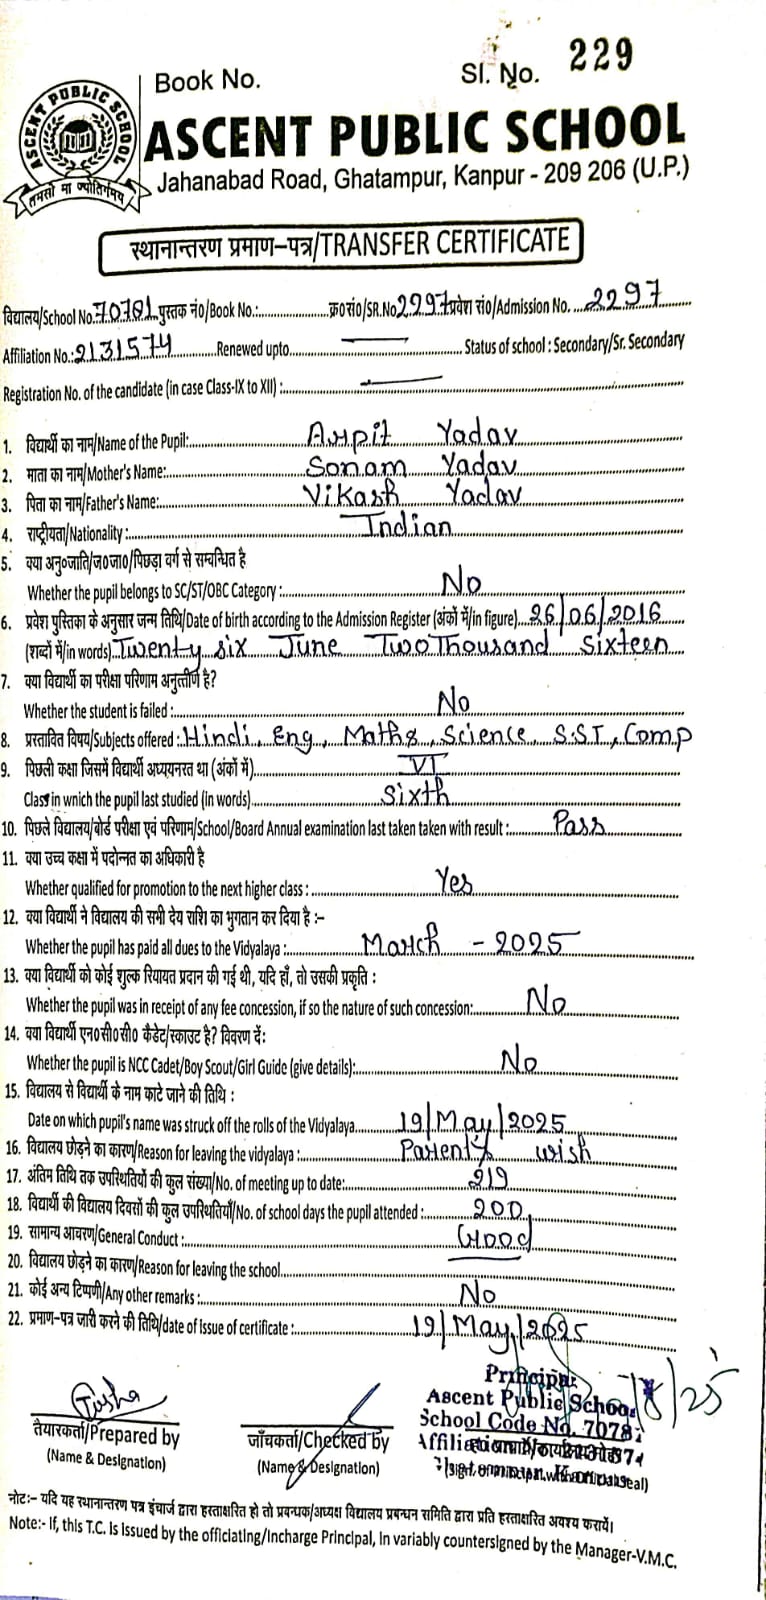 Book No.
Sl. No. 229
ASCENT PUBLIC SCHOOL
तमसो मा ज्योतिर्गमय
ASCENT PUBLIC SCHOOL
Jahanabad Road, Ghatampur, Kanpur - 209 206 (U.P.)
स्थानान्तरण प्रमाण-पत्र/TRANSFER CERTIFICATE
विद्यालय/School No. 70781 पुस्तक नं०/Book No.: क्र०सं०/SR.No 2297 प्रवेश सं०/Admission No. 2297
Affiliation No.: 2131574 Renewed upto — Status of school : Secondary/Sr. Secondary
Registration No. of the candidate (in case Class-IX to XII) : —
1. विद्यार्थी का नाम/Name of the Pupil: Arpit Yadav
2. माता का नाम/Mother's Name: Sonam Yadav
3. पिता का नाम/Father's Name: Vikash Yadav
4. राष्ट्रीयता/Nationality : Indian
5. क्या अनु०जाति/ज०जा०/पिछड़ा वर्ग से सम्बन्धित है
Whether the pupil belongs to SC/ST/OBC Category : No
6. प्रवेश पुस्तिका के अनुसार जन्म तिथि/Date of birth according to the Admission Register (अंकों में/in figure) 26/06/2016
(शब्दों में/in words) Twenty six June Two Thousand Sixteen
7. क्या विद्यार्थी का परीक्षा परिणाम अनुत्तीर्ण है?
Whether the student is failed : No
8. प्रस्तावित विषय/Subjects offered : Hindi, Eng, Maths, Science S.ST, Comp
9. पिछली कक्षा जिसमें विद्यार्थी अध्ययनरत था (अंकों में) VI
Class in wnich the pupil last studied (in words) Sixth
10. पिछले विद्यालय/बोर्ड परीक्षा एवं परिणाम/School/Board Annual examination last taken taken with result : Pass
11. क्या उच्च कक्षा में पदोन्नत का अधिकारी है
Whether qualified for promotion to the next higher class : Yes
12. क्या विद्यार्थी ने विद्यालय की सभी देय राशि का भुगतान कर दिया है :-
Whether the pupil has paid all dues to the Vidyalaya : March - 2025
13. क्या विद्यार्थी को कोई शुल्क रियायत प्रदान की गई थी, यदि हाँ, तो उसकी प्रकृति :
Whether the pupil was in receipt of any fee concession, if so the nature of such concession: No
14. क्या विद्यार्थी एन०सी०सी० कैडेट/स्काउट है? विवरण दें:
Whether the pupil is NCC Cadet/Boy Scout/Girl Guide (give details): No
15. विद्यालय से विद्यार्थी के नाम काटे जाने की तिथि :
Date on which pupil's name was struck off the rolls of the Vidyalaya 19/May/2025
16. विद्यालय छोड़ने का कारण/Reason for leaving the vidyalaya : Parent's wish
17. अंतिम तिथि तक उपस्थितियों की कुल संख्या/No. of meeting up to date: 219
18. विद्यार्थी की विद्यालय दिवसों की कुल उपस्थितियाँ/No. of school days the pupil attended : 200
19. सामान्य आचरण/General Conduct : Good
20. विद्यालय छोड़ने का कारण/Reason for leaving the school
21. कोई अन्य टिप्पणी/Any other remarks : No
22. प्रमाण-पत्र जारी करने की तिथि/date of Issue of certificate : 19/May/2025
Principal
Ascent Public School
School Code No. 7078
Affiliation
तैयारकर्ता/Prepared by
(Name & Designation)
जाँचकर्ता/Checked by
(Name & Designation)
नोट:- यदि यह स्थानान्तरण पत्र इंचार्ज द्वारा हस्ताक्षरित हो तो प्रबन्धक/अध्यक्ष विद्यालय प्रबन्धन समिति द्वारा प्रति हस्ताक्षरित अवश्य करायें।
Note:- If, this T.C. is issued by the officiating/Incharge Principal, In variably countersigned by the Manager-V.M.C.